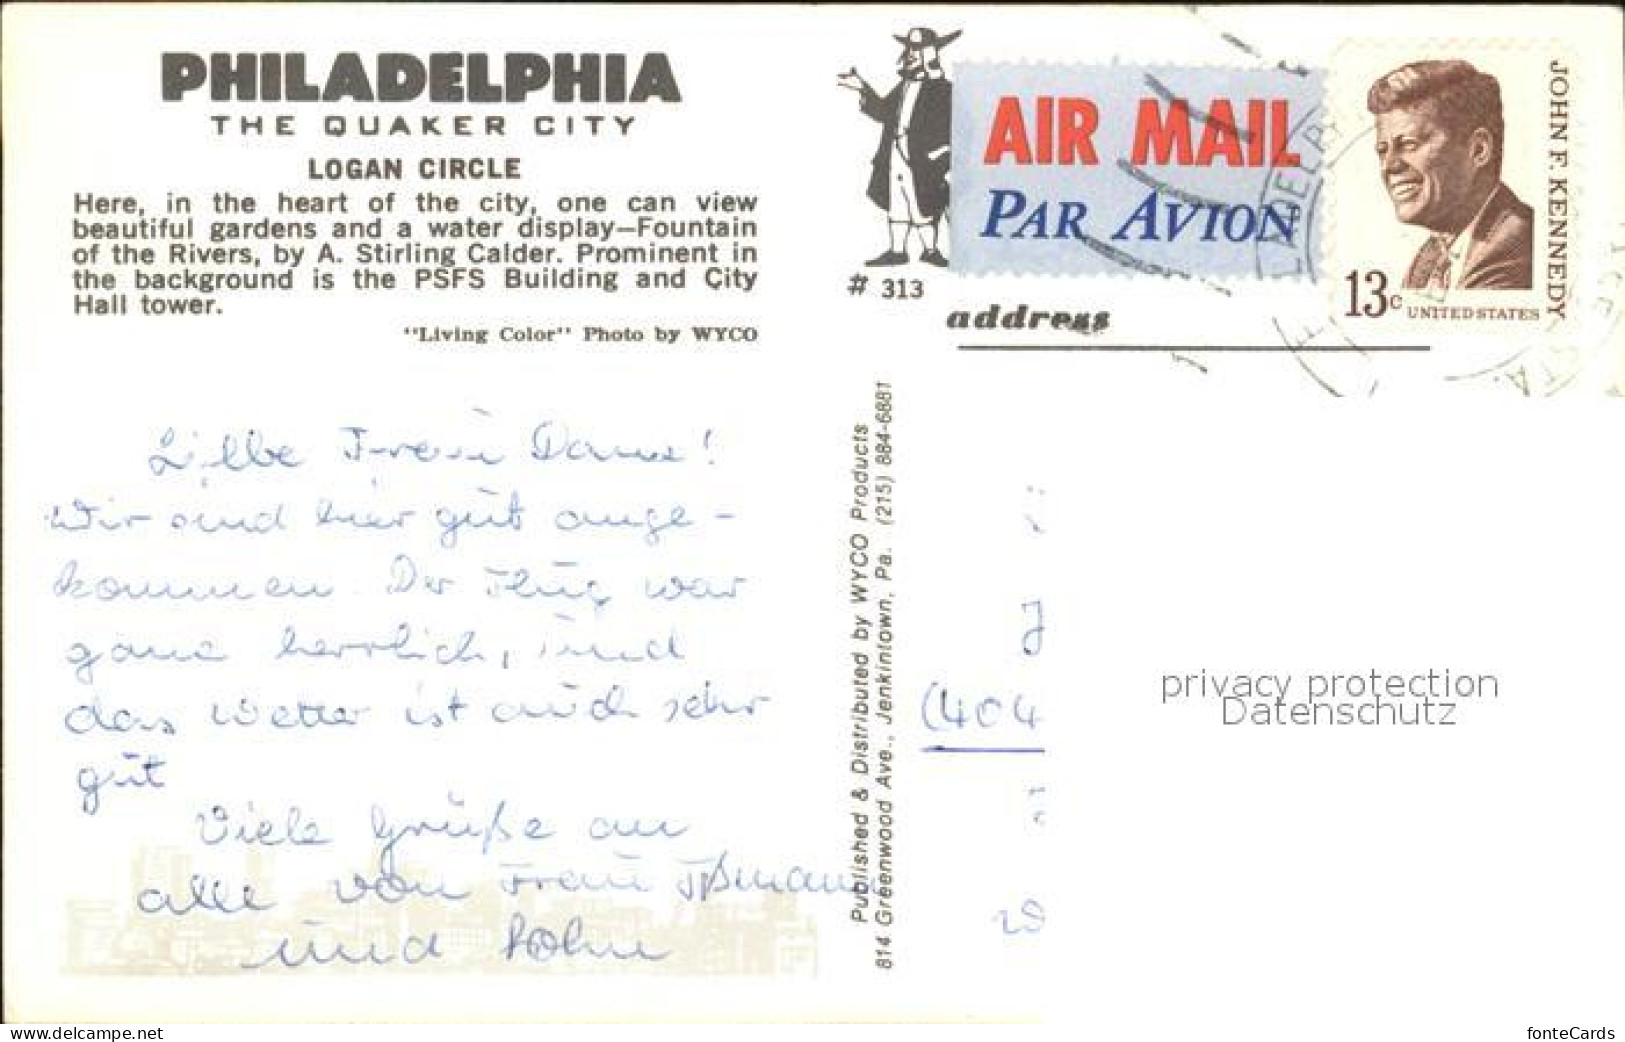 PHILADELPHIA
THE QUAKER CITY
LOGAN CIRCLE
Here, in the heart of the city, one can view
beautiful gardens and a water display—Fountain
of the Rivers, by A. Stirling Calder. Prominent in
the background is the PSFS Building and City
Hall tower.
"Living Color" Photo by WYCO
# 313
AIR MAIL
PAR AVION
JOHN F. KENNEDY
13c UNITED STATES
address
Liebe Frau
Wir sind hier gut ange-
kommen. Der Flug war
ganz herrlich, und
das Wetter ist auch sehr
gut
Viele Grüße an
alle von Frau
und Sohn
Published & Distributed by WYCO Products
814 Greenwood Ave., Jenkintown, Pa. (215) 884-6881
J
(404
privacy protection
Datenschutz
www.delcampe.net
fonteCards